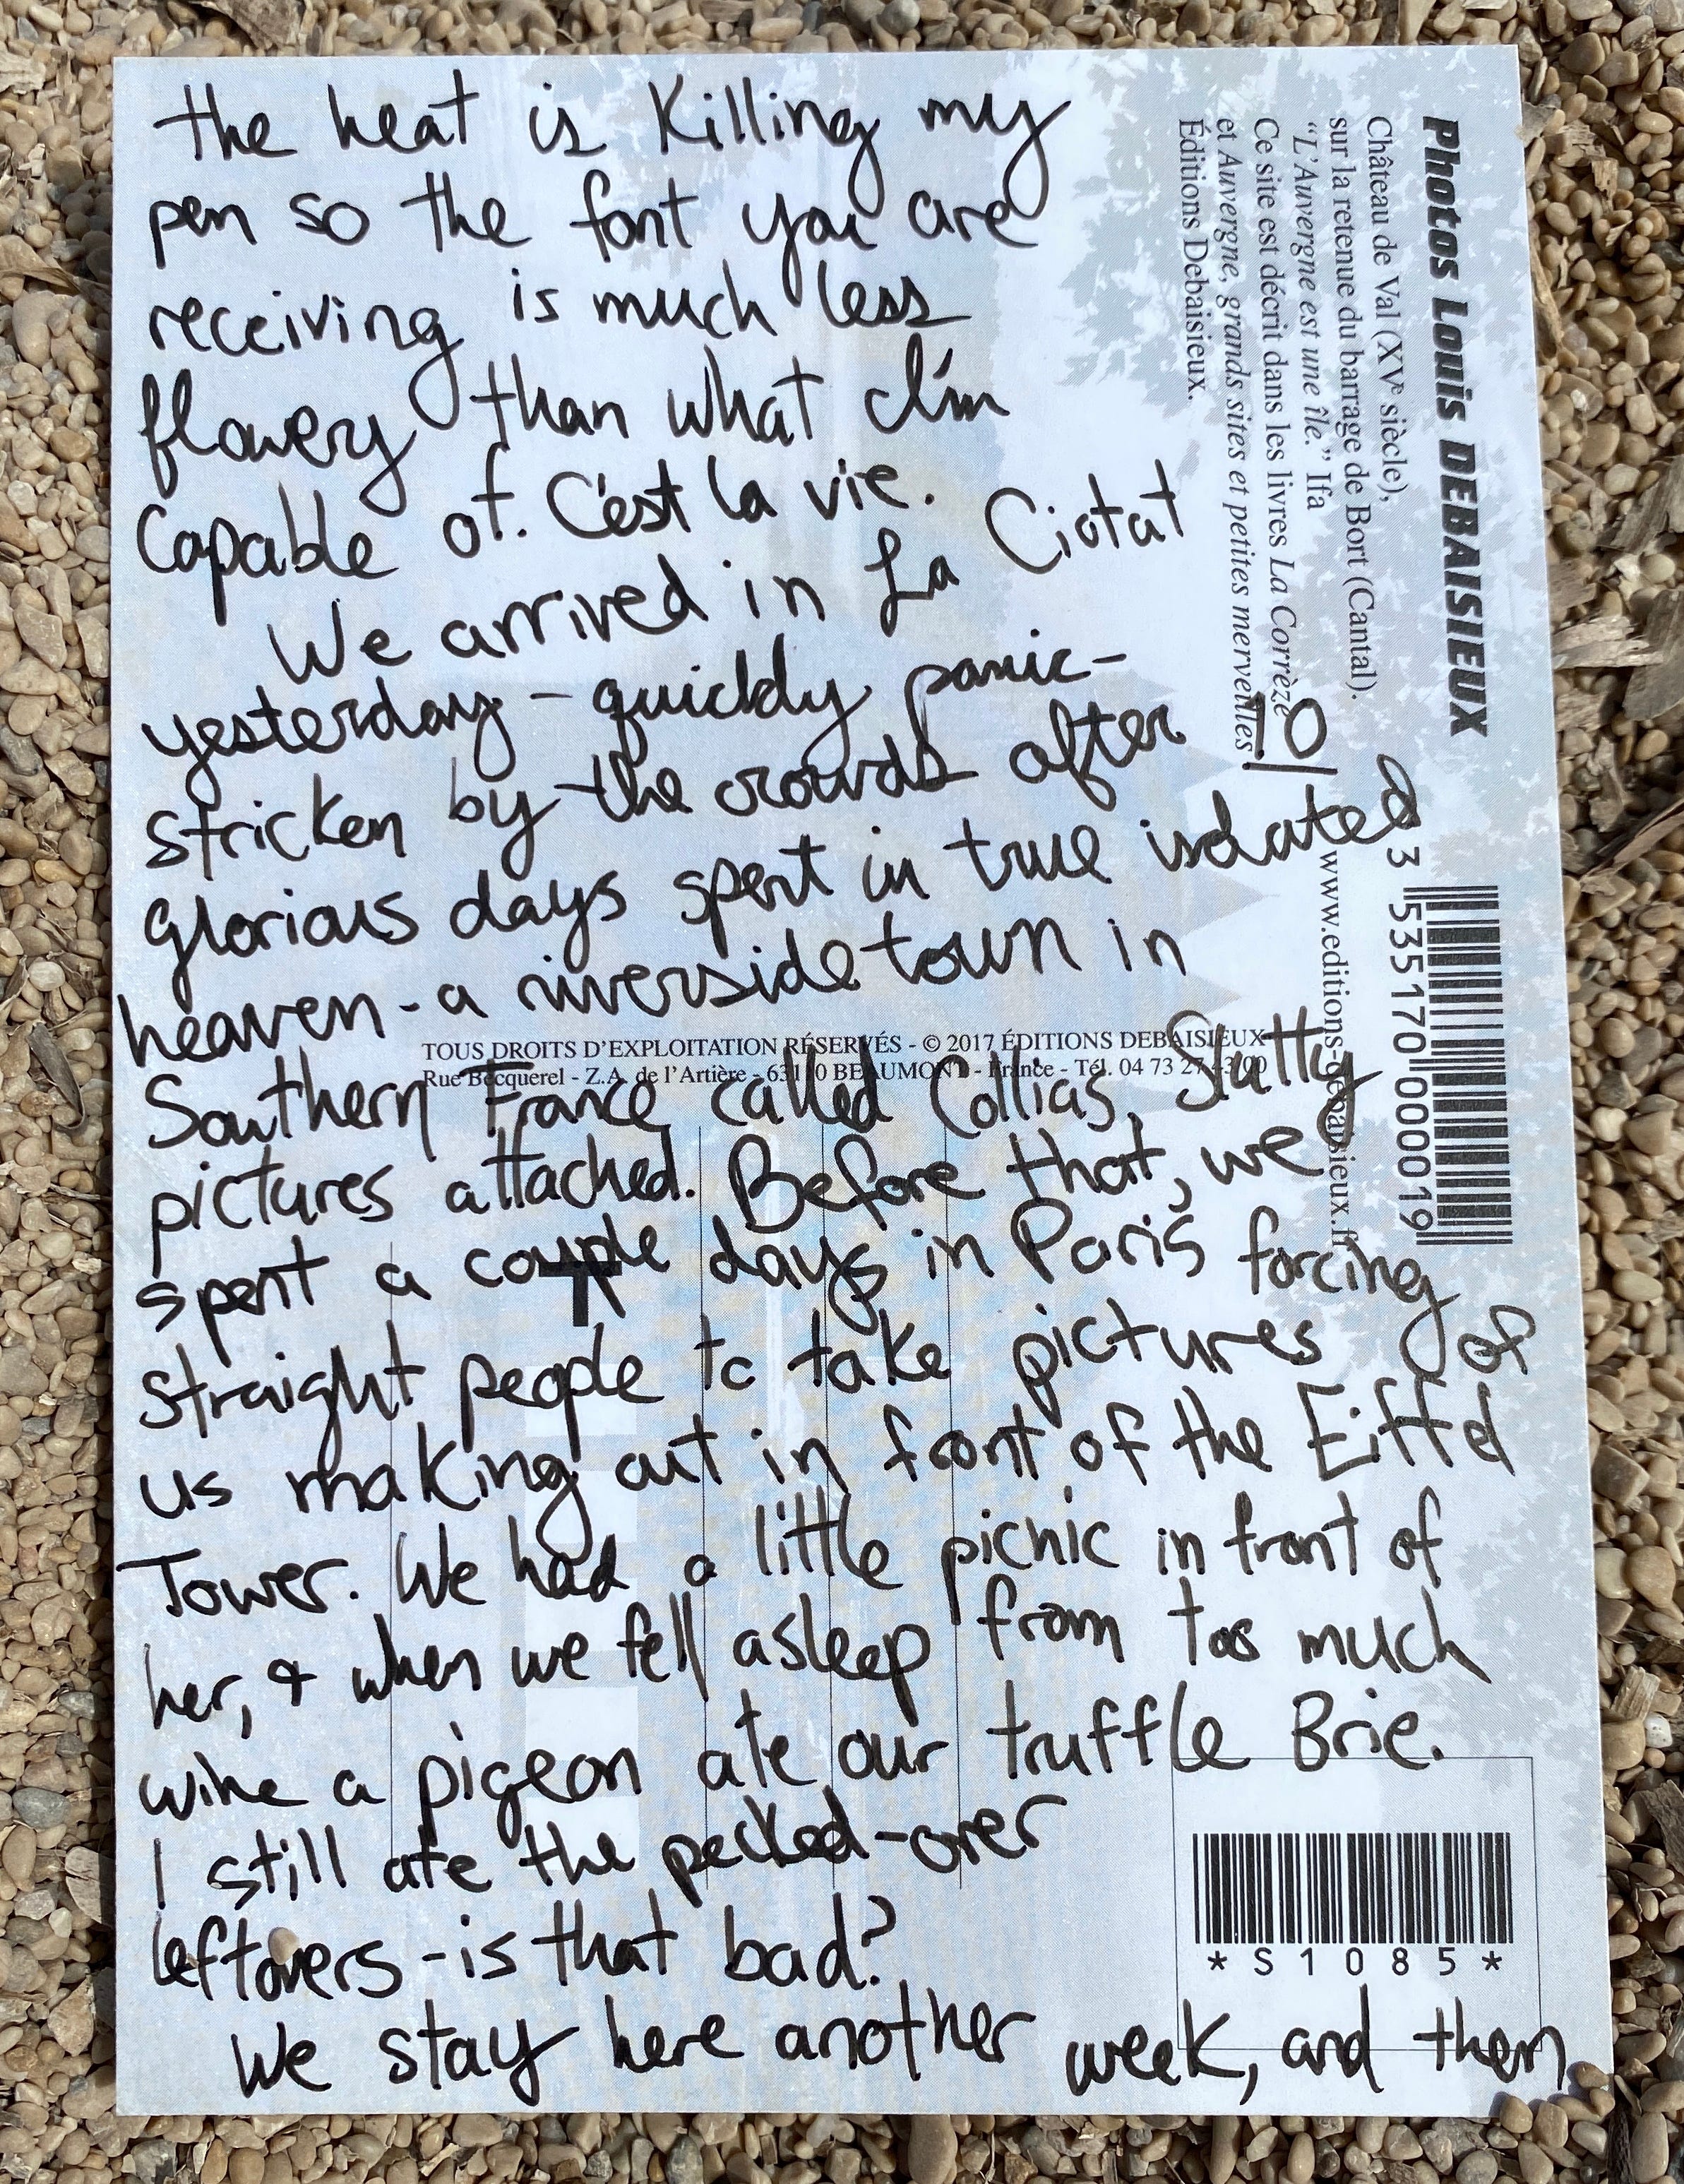 the heat is killing my
pen so the font you are
receiving is much less
flowery than what I'm
capable of. C'est la vie.
We arrived in La Ciotat
yesterday - quickly panic-
stricken by the crowds after
glorious days spent in true isolated
heaven - a riverside town in
Southern France called Collias. Slutty
pictures attached. Before that, we
spent a couple days in Paris forcing
straight people to take pictures of
us making out in front of the Eiffel
Tower. We had a little picnic in front of
her, & when we fell asleep from too much
wine a pigeon ate our truffle Brie.
I still ate the pecked-over
leftovers - is that bad?
We stay here another week, and then
Photos Louis DEBAISIEUX
Château de Val (XVe siècle),
sur la retenue du barrage de Bort (Cantal).
“L'Auvergne est une île.” Ifa
Ce site est décrit dans les livres La Corrèze
et Auvergne, grands sites et petites merveilles.
Éditions Debaisieux.
10
www.editions-debaisieux.fr
3 535170 000019
TOUS DROITS D'EXPLOITATION RÉSERVÉS - © 2017 ÉDITIONS DEBAISIEUX
Rue Becquerel - Z.A. de l'Artière - 63110 BEAUMONT - France - Tél. 04 73 27 43 00
*S1085*